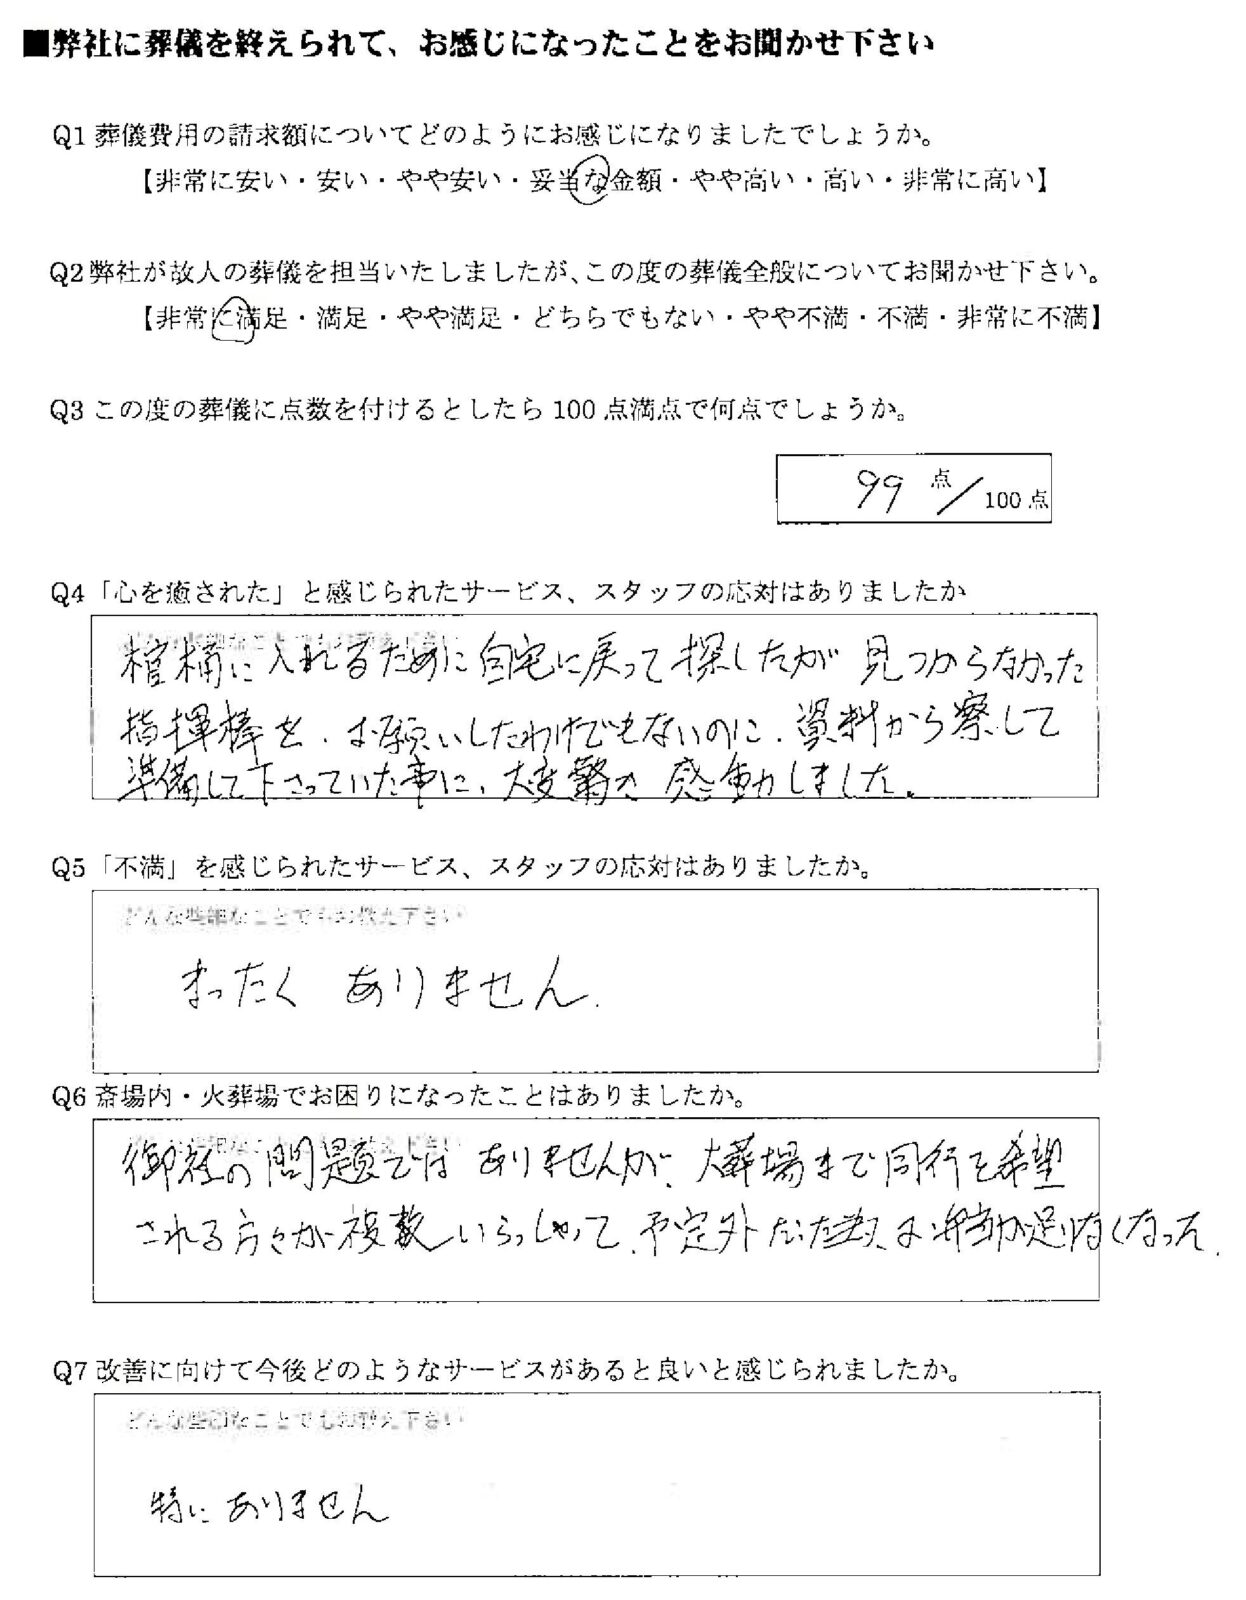 ■弊社に葬儀を終えられて、お感じになったことをお聞かせ下さい
Q1 葬儀費用の請求額についてどのようにお感じになりましたでしょうか。
【非常に安い・安い・やや安い・妥当な金額・やや高い・高い・非常に高い】
Q2 弊社が故人の葬儀を担当いたしましたが、この度の葬儀全般についてお聞かせ下さい。
【非常に満足・満足・やや満足・どちらでもない・やや不満・不満・非常に不満】
Q3 この度の葬儀に点数を付けるとしたら 100 点満点で何点でしょうか。
99 点／100 点
Q4「心を癒された」と感じられたサービス、スタッフの応対はありましたか
棺桶に入れるために自宅に戻って探したが見つからなかった
指揮棒を、お願いしたわけでもないのに、資料から察して
準備して下さっていた事に、大変驚き感動しました。
Q5「不満」を感じられたサービス、スタッフの応対はありましたか。
どんな些細なことでもお教え下さい
まったく ありません.
Q6 斎場内・火葬場でお困りになったことはありましたか。
御社の問題ではありませんが、火葬場まで同行を希望
される方々が複数いらっしゃって、予定外だった為、お弁当が足りなくなった.
Q7 改善に向けて今後どのようなサービスがあると良いと感じられましたか。
どんな些細なことでもお教え下さい
特に ありません